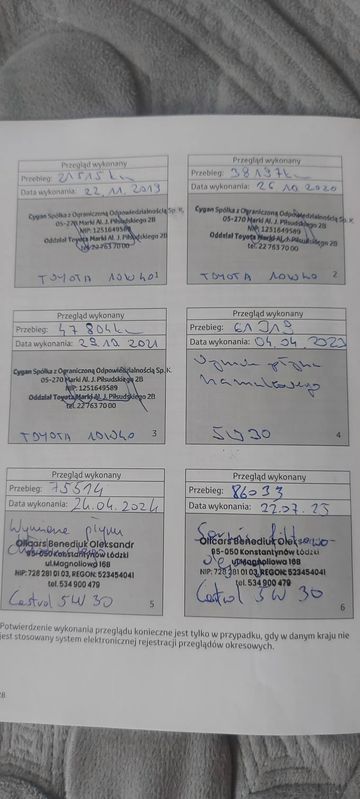 Przegląd wykonany
Przebieg: 21515 km
Data wykonania: 22.11.2019
Cygan Spółka z Ograniczoną Odpowiedzialnością Sp. K.
05-270 Marki Al. J. Piłsudskiego 2B
NIP: 1251649589
Oddział Toyota Marki Al. J. Piłsudskiego 2B
tel. 22 763 70 00
TOYOTA 10W40
1
Przegląd wykonany
Przebieg: 38197km
Data wykonania: 26 10 2020
Cygan Spółka z Ograniczoną Odpowiedzialnością Sp. K.
05-270 Marki Al. J. Piłsudskiego 2B
NIP: 1251649589
Oddział Toyota Marki Al. J. Piłsudskiego 2B
tel. 22 763 70 00
TOYOTA 10W40
2
Przegląd wykonany
Przebieg: 47804km
Data wykonania: 29.10 2021
Cygan Spółka z Ograniczoną Odpowiedzialnością Sp. K.
05-270 Marki Al. J. Piłsudskiego 2B
NIP: 1251649589
Oddział Toyota Marki Al. J. Piłsudskiego 2B
tel. 22 763 70 00
TOYOTA 10W40
3
Przegląd wykonany
Przebieg: 61319
Data wykonania: 04.04.2023
płynu
hamulcowego
5W30
4
Przegląd wykonany
Przebieg: 75514
Data wykonania: 24.04.2024
Wymiana płynu
Oligars Benediuk Oleksandr
95-050 Konstantynów Łódzki
ul.Magnoliowa 16B
NIP: 728 281 01 03, REGON: 523454041
tel. 534 900 479
Castrol 5W30
5
Przegląd wykonany
Przebieg: 86033
Data wykonania: 22.07.25
Oligars Benediuk Oleksandr
95-050 Konstantynów Łódzki
ul.Magnoliowa 16B
NIP: 728 281 01 03, REGON: 523454041
tel. 534 900 479
Castrol 5W30
6
Potwierdzenie wykonania przeglądu konieczne jest tylko w przypadku, gdy w danym kraju nie
jest stosowany system elektronicznej rejestracji przeglądów okresowych.
28